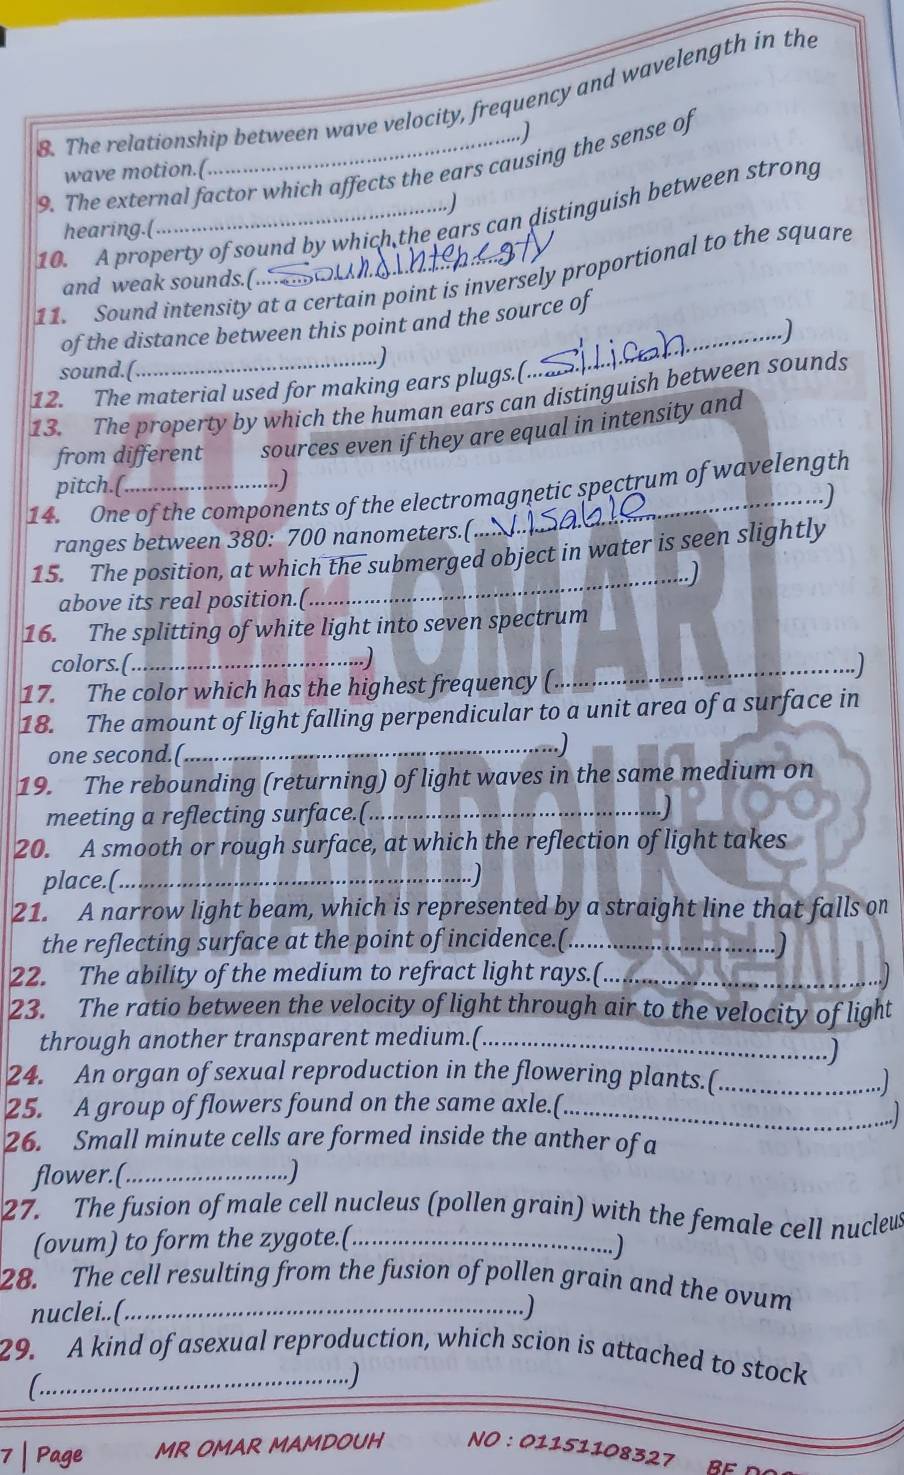 8. The relationship between wave velocity, frequency and wavelength in the
wave motion.(..............................)
9. The external factor which affects the ears causing the sense of
hearing.(..............................)
10. A property of sound by which,the ears can distinguish between strong
and weak sounds.(....Sound intepesty
11. Sound intensity at a certain point is inversely proportional to the square
of the distance between this point and the source of
sound.(..............................)
12. The material used for making ears plugs.(...Silicon...............)
13. The property by which the human ears can distinguish between sounds
from different sources even if they are equal in intensity and
pitch.(..........................)
14. One of the components of the electromagnetic spectrum of wavelength
ranges between 380: 700 nanometers.(....Visable....................)
15. The position, at which the submerged object in water is seen slightly
above its real position.(..................................................)
16. The splitting of white light into seven spectrum
colors.(...................................)
17. The color which has the highest frequency (........................................)
18. The amount of light falling perpendicular to a unit area of a surface in
one second.(..................................................)
19. The rebounding (returning) of light waves in the same medium on
meeting a reflecting surface.(........................................)
20. A smooth or rough surface, at which the reflection of light takes
place.(..................................................)
21. A narrow light beam, which is represented by a straight line that falls on
the reflecting surface at the point of incidence.(..............................)
22. The ability of the medium to refract light rays.(........................................)
23. The ratio between the velocity of light through air to the velocity of light
through another transparent medium.(..................................................)
24. An organ of sexual reproduction in the flowering plants.(.........................)
25. A group of flowers found on the same axle.(..................................................)
26. Small minute cells are formed inside the anther of a
flower.(..........................)
27. The fusion of male cell nucleus (pollen grain) with the female cell nucleus
(ovum) to form the zygote.(........................................)
28. The cell resulting from the fusion of pollen grain and the ovum
nuclei..(............................................................)
29. A kind of asexual reproduction, which scion is attached to stock
(..................................................)
4U
Mr. OMAR
MAMDOUH
7 | Page MR OMAR MAMDOUH NO : 01151108327 BE